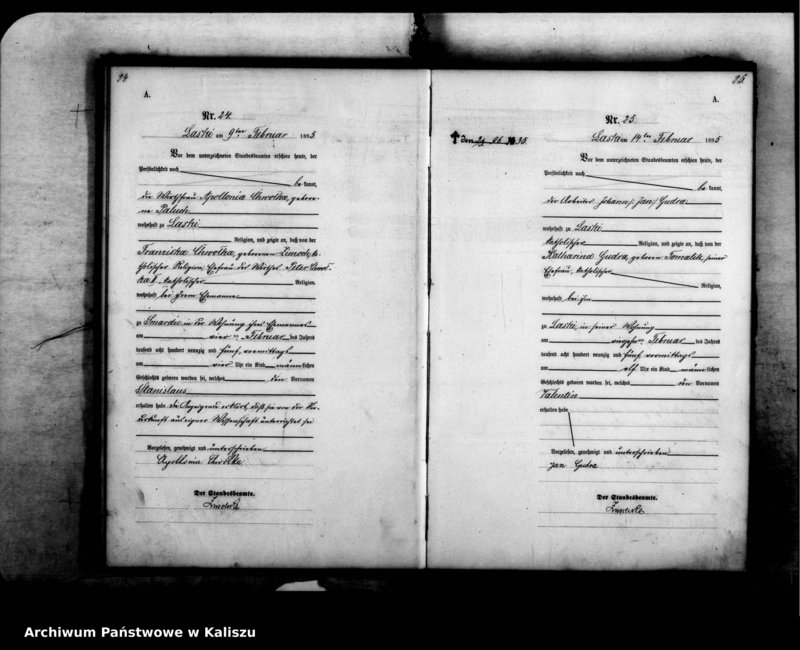 24
A.
Nr. 24
Laski am 9ten Februar 1895.
Vor dem unterzeichneten Standesbeamten erschien heute, der
Persönlichkeit nach
be kannt,
die Wirthsfrau Apollonia Chwolka, gebore-
ne Paluch
wohnhaft zu Laski
Religion, und zeigte an, daß von der
Franziska Chwolka, geborenen Zimoch, ka-
tholischer Religion, Ehefrau des Wirthes Peter Chwol-
ka II. katholischer Religion,
wohnhaft bei ihrem Ehemanne
zu Smardze in der Wohnung ihres Ehemannes
am vier ten Februar des Jahres
tausend acht hundert neunzig und fünf, vormittags
um vier Uhr ein Kind männ lichen
Geschlechts geboren worden sei, welches den Vornamen
Stanislaus
erhalten habe. Die Anzeigende erklärt, daß sie von der Nie-
derkunft aus eigener Wissenschaft unterrichtet sei
Vorgelesen, genehmigt und unterschrieben
Apollonia Chwolka
Der Standesbeamte.
25
A.
Nr. 25
Laski am 14ten Februar 1895
Vor dem unterzeichneten Standesbeamten erschien heute, der
Persönlichkeit nach
be kannt,
der Arbeiter Johann (Jan) Gudra
wohnhaft zu Laski
katholischer Religion, und zeigte an, daß von der
Katharina Gudra, geboren Tomalik, seiner
Ehefrau, katholischer
Religion,
wohnhaft bei ihm
zu Laski, in seiner Wohnung
am vierzehn ten Februar des Jahres
tausend acht hundert neunzig und fünf, vormittags
um elf Uhr ein Kind männ lichen
Geschlechts geboren worden sei, welches den Vornamen
Valentin
erhalten habe
Vorgelesen, genehmigt und unterschrieben
Jan Gudra
Der Standesbeamte.
Archiwum Państwowe w Kaliszu